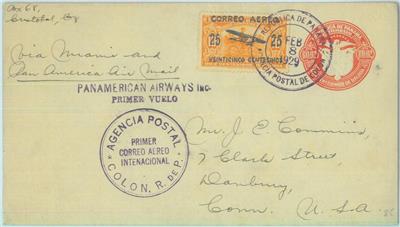 Box 68,
Cristobal, Cz
Via Miami and
Pan America Air Mail
CORREO AEREO
25 25
VEINTICINCO CENTESIMOS
REPUBLICA DE PANAMA
25 FEB
8
1929
AGENCIA POSTAL DE COLON
REPUBLICA DE PANAMA
PANAMERICAN AIRWAYS INC.
PRIMER VUELO
AGENCIA POSTAL
PRIMER
CORREO AEREO
INTENACIONAL
COLON, R. DE P.
Mr. J. E. Commins,
7 Clark Street,
Danbury,
Conn. U.S.A.